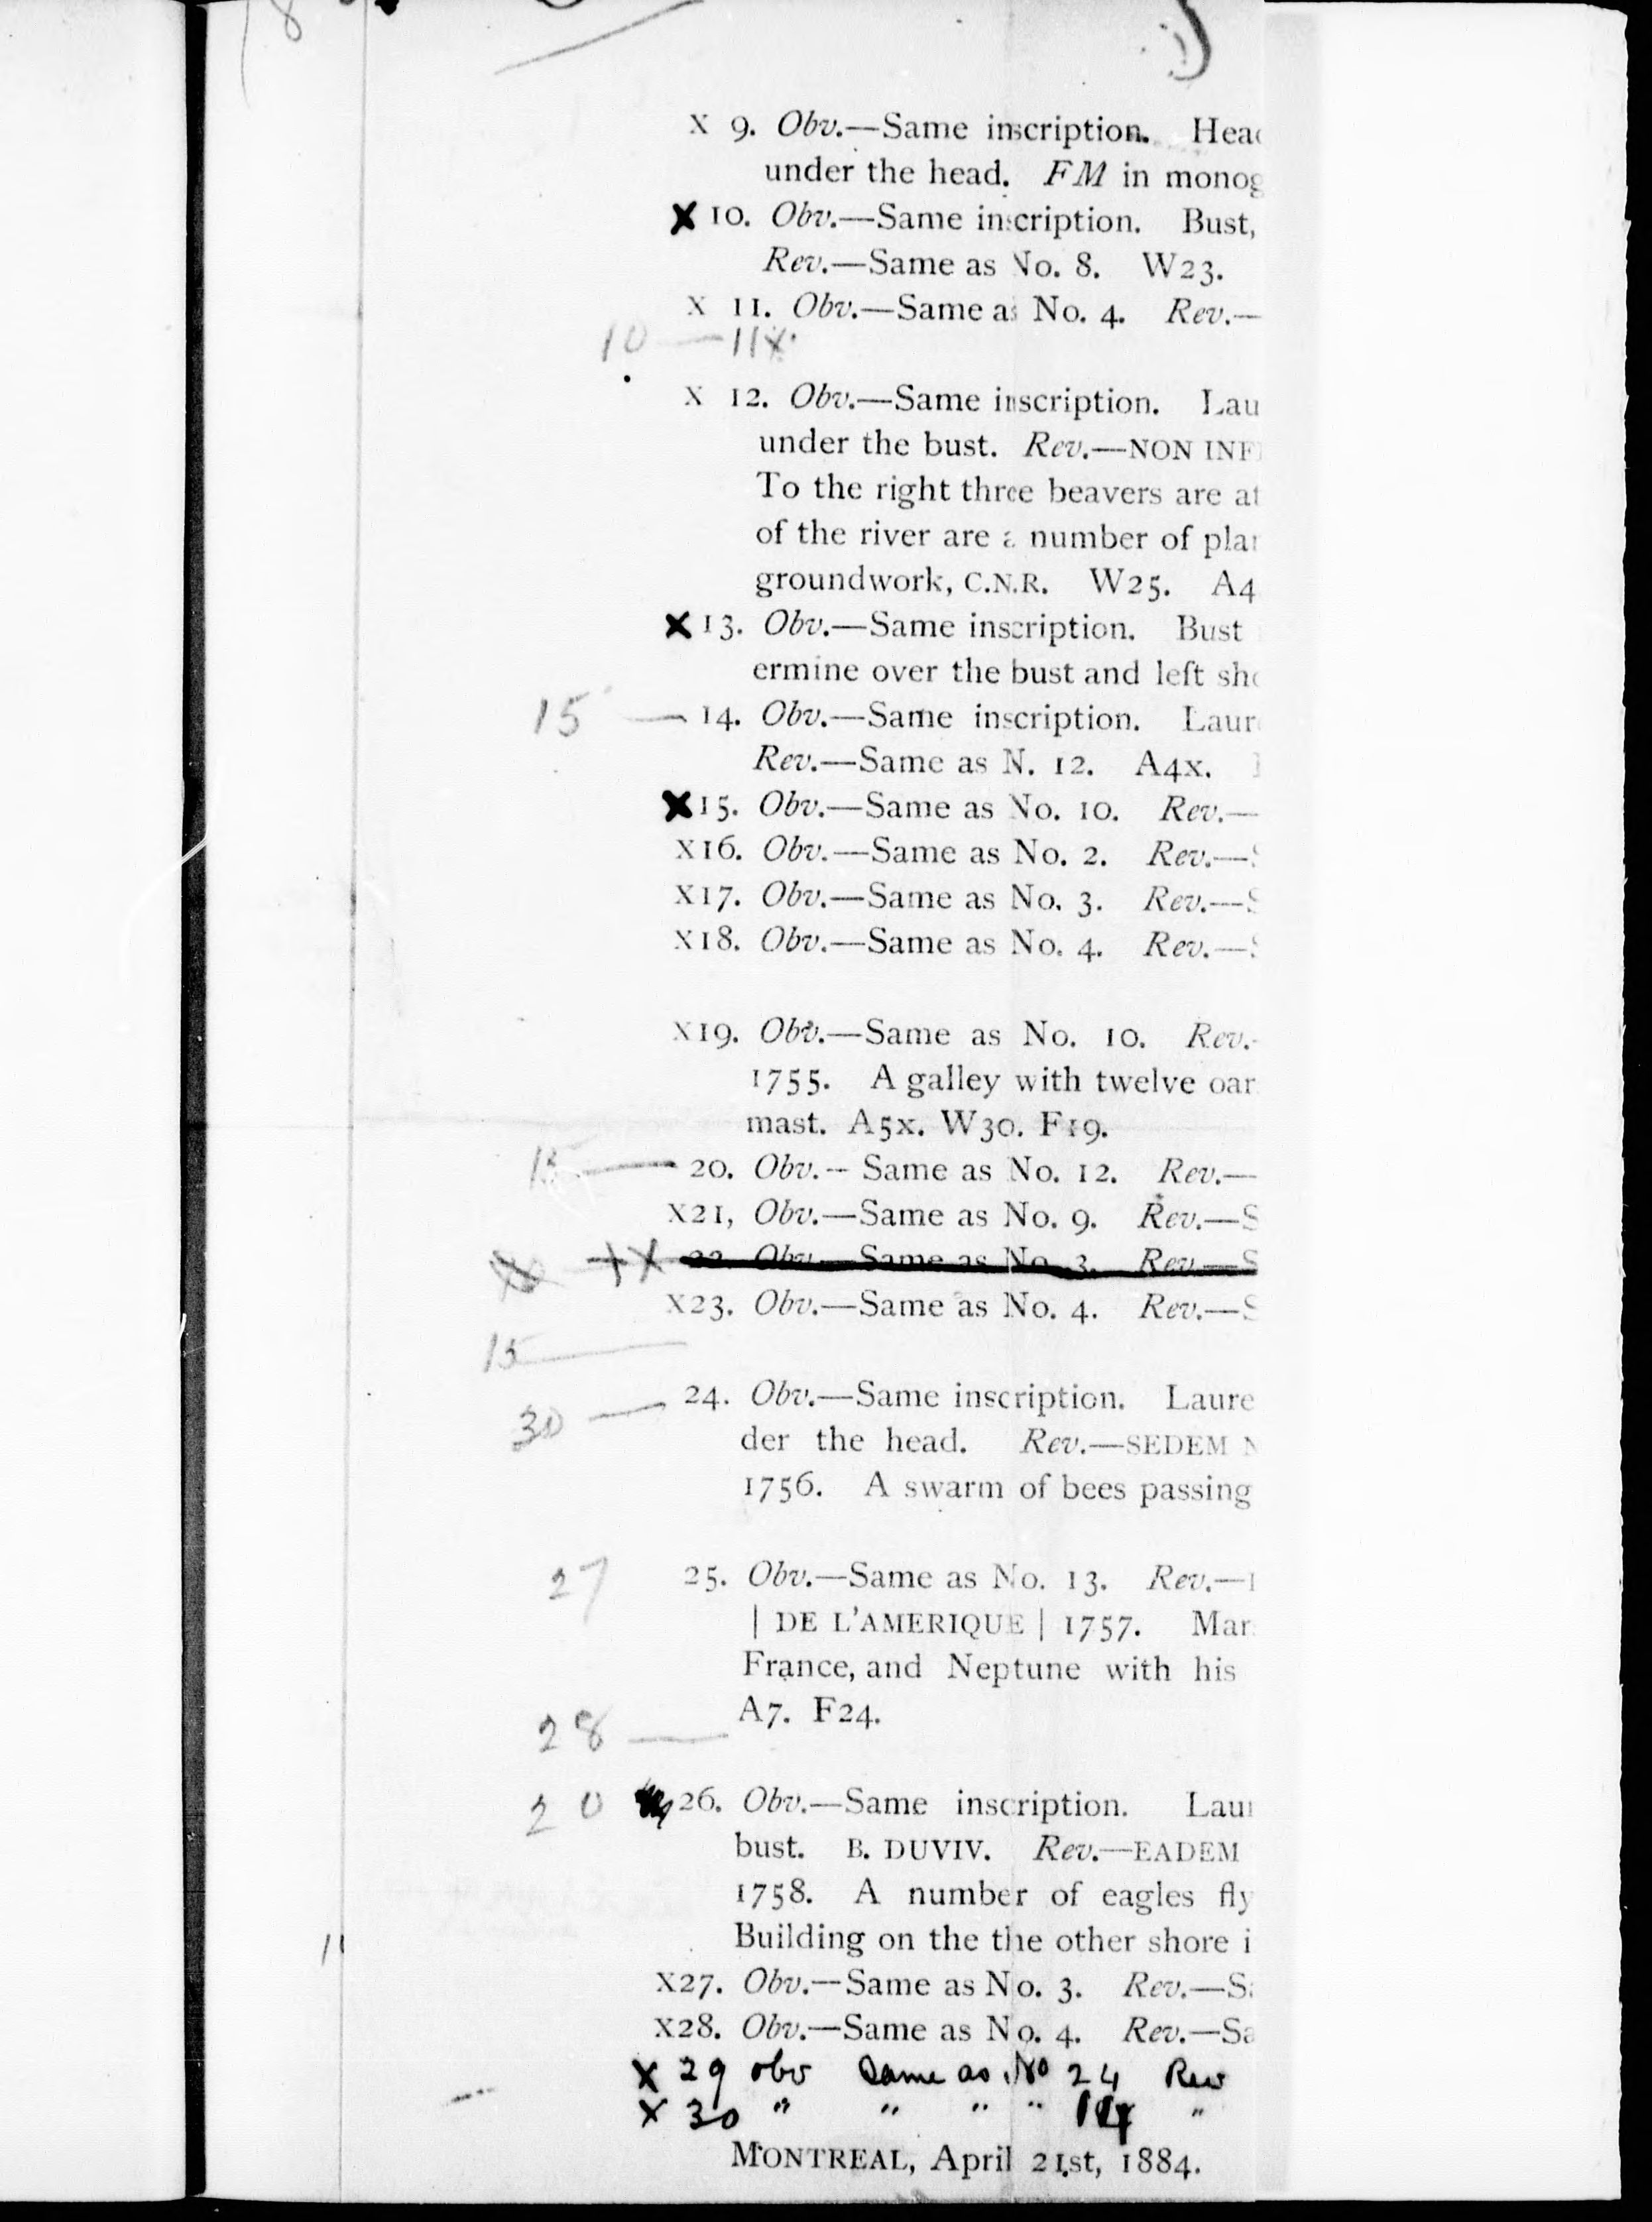 8
X 9. Obv.—Same inscription. Head
under the head. FM in monog
X 10. Obv.—Same inscription. Bust,
Rev.—Same as No. 8. W23.
X 11. Obv.—Same as No. 4. Rev.—
10 — 11X
X 12. Obv.—Same inscription. Lau
under the bust. Rev.—NON INF
To the right three beavers are at
of the river are a number of pla
groundwork, C.N.R. W25. A4
X 13. Obv.—Same inscription. Bust
ermine over the bust and left sho
15 — 14. Obv.—Same inscription. Laur
Rev.—Same as N. 12. A4x.
X 15. Obv.—Same as No. 10. Rev.—
X16. Obv.—Same as No. 2. Rev.—S
X17. Obv.—Same as No. 3. Rev.—S
X18. Obv.—Same as No. 4. Rev.—S
X19. Obv.—Same as No. 10. Rev.
1755. A galley with twelve oar
mast. A5x. W30. F19.
15 — 20. Obv.-- Same as No. 12. Rev.—
X21, Obv.—Same as No. 9. Rev.—S
X X 22. Obv.—Same as No. 3. Rev.—S
X23. Obv.—Same as No. 4. Rev.—S
15 —
30 — 24. Obv.—Same inscription. Laure
der the head. Rev.—SEDEM N
1756. A swarm of bees passing
27 25. Obv.—Same as No. 13. Rev.—
| DE L'AMERIQUE | 1757. Mar
France, and Neptune with his
A7. F24.
28 —
20 26. Obv.—Same inscription. Lau
bust. B. DUVIV. Rev.—EADEM
1758. A number of eagles fly
Building on the the other shore i
X27. Obv.—Same as No. 3. Rev.—Sa
X28. Obv.—Same as No. 4. Rev.—Sa
X 29 obv Same as No 24 Rev
X 30 " " " " 14 "
MONTREAL, April 21st, 1884.